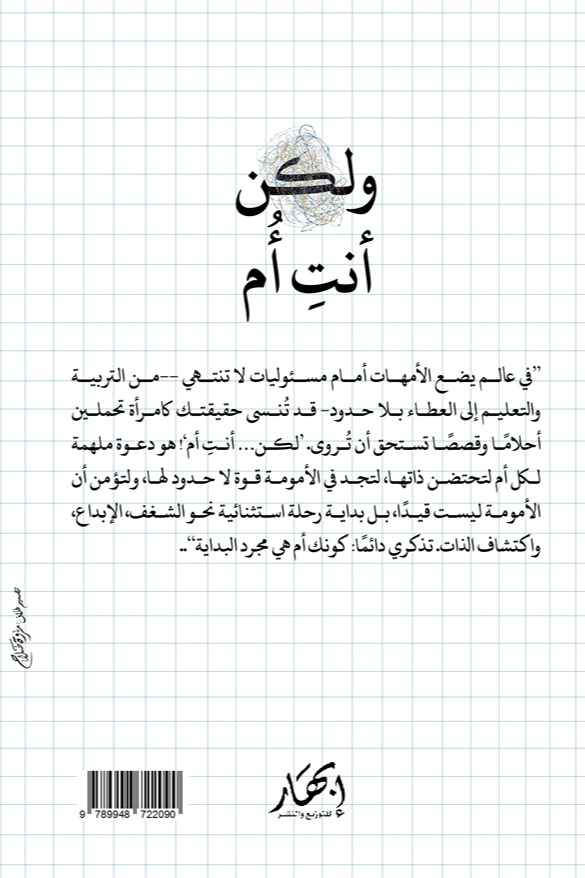 ولكن
أنتِ أُم
”في عالم يضع الأمهات أمام مسئوليات لا تنتهي --من التربية
والتعليم إلى العطاء بلا حدود- قد تُنسى حقيقتك كامرأة تحملين
أحلامًا وقصصًا تستحق أن تُروى. ’لكن... أنتِ أم‘! هو دعوة ملهمة
لكل أم لتحتضن ذاتها، لتجد في الأمومة قوة لا حدود لها، ولتؤمن أن
الأمومة ليست قيدًا، بل بداية رحلة استثنائية نحو الشغف، الإبداع،
واكتشاف الذات. تذكري دائمًا: كونك أم هي مجرد البداية“..
تصميم غلاف: مروة صلاح
إبهار
للتوزيع والنشر
9 789948 722090